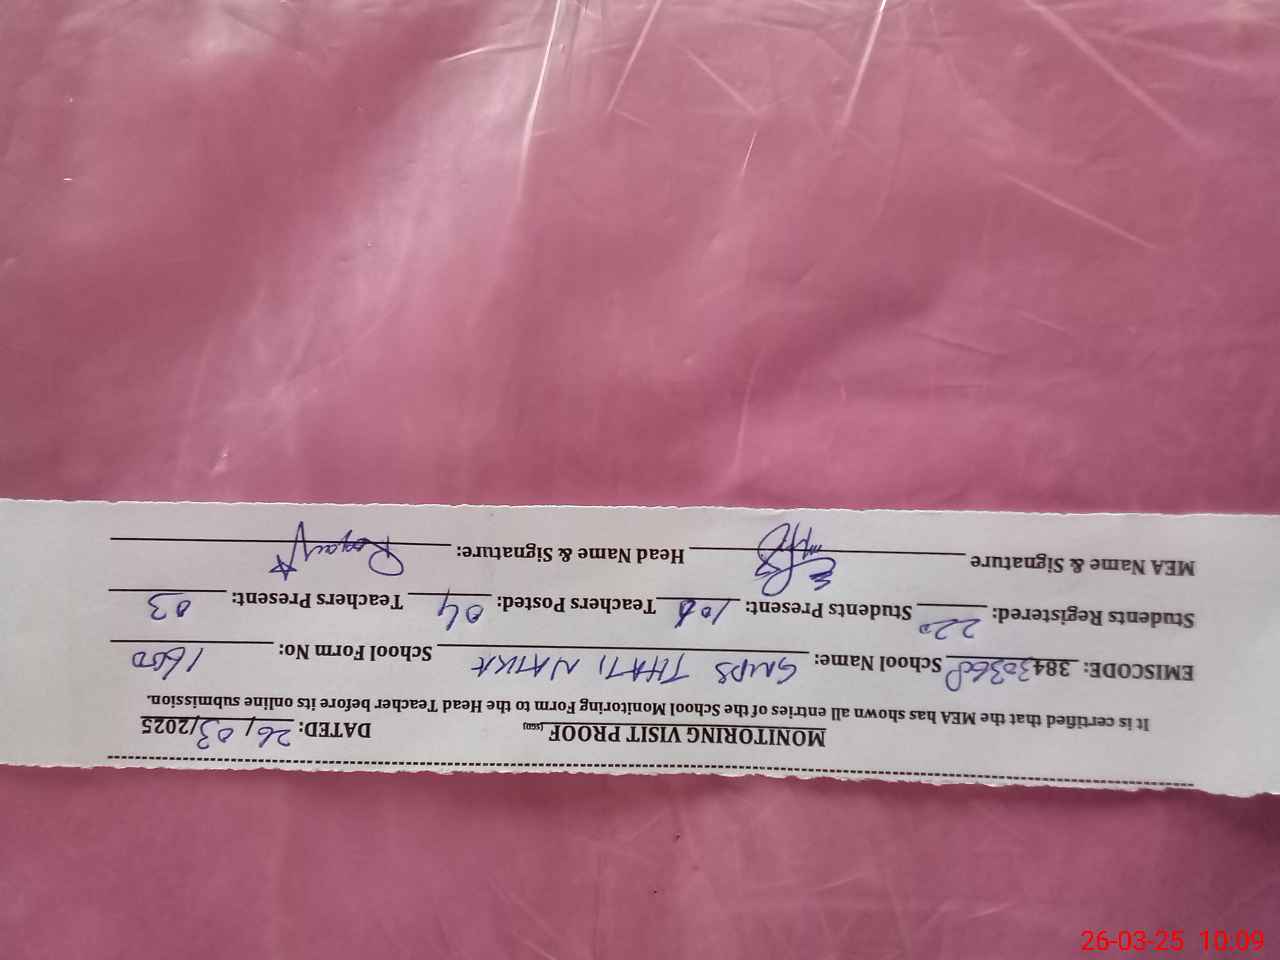 MONITORING VISIT PROOF (SED) DATED: 26/03/2025
It is certified that the MEA has shown all entries of the School Monitoring Form to the Head Teacher before its online submission.
EMISCODE: 38430368 School Name: GMPS THATI NATIKA School Form No: 1600
Students Registered: 220 Students Present: 106 Teachers Posted: 04 Teachers Present: 03
MEA Name & Signature Head Name & Signature:
26-03-25 10:09